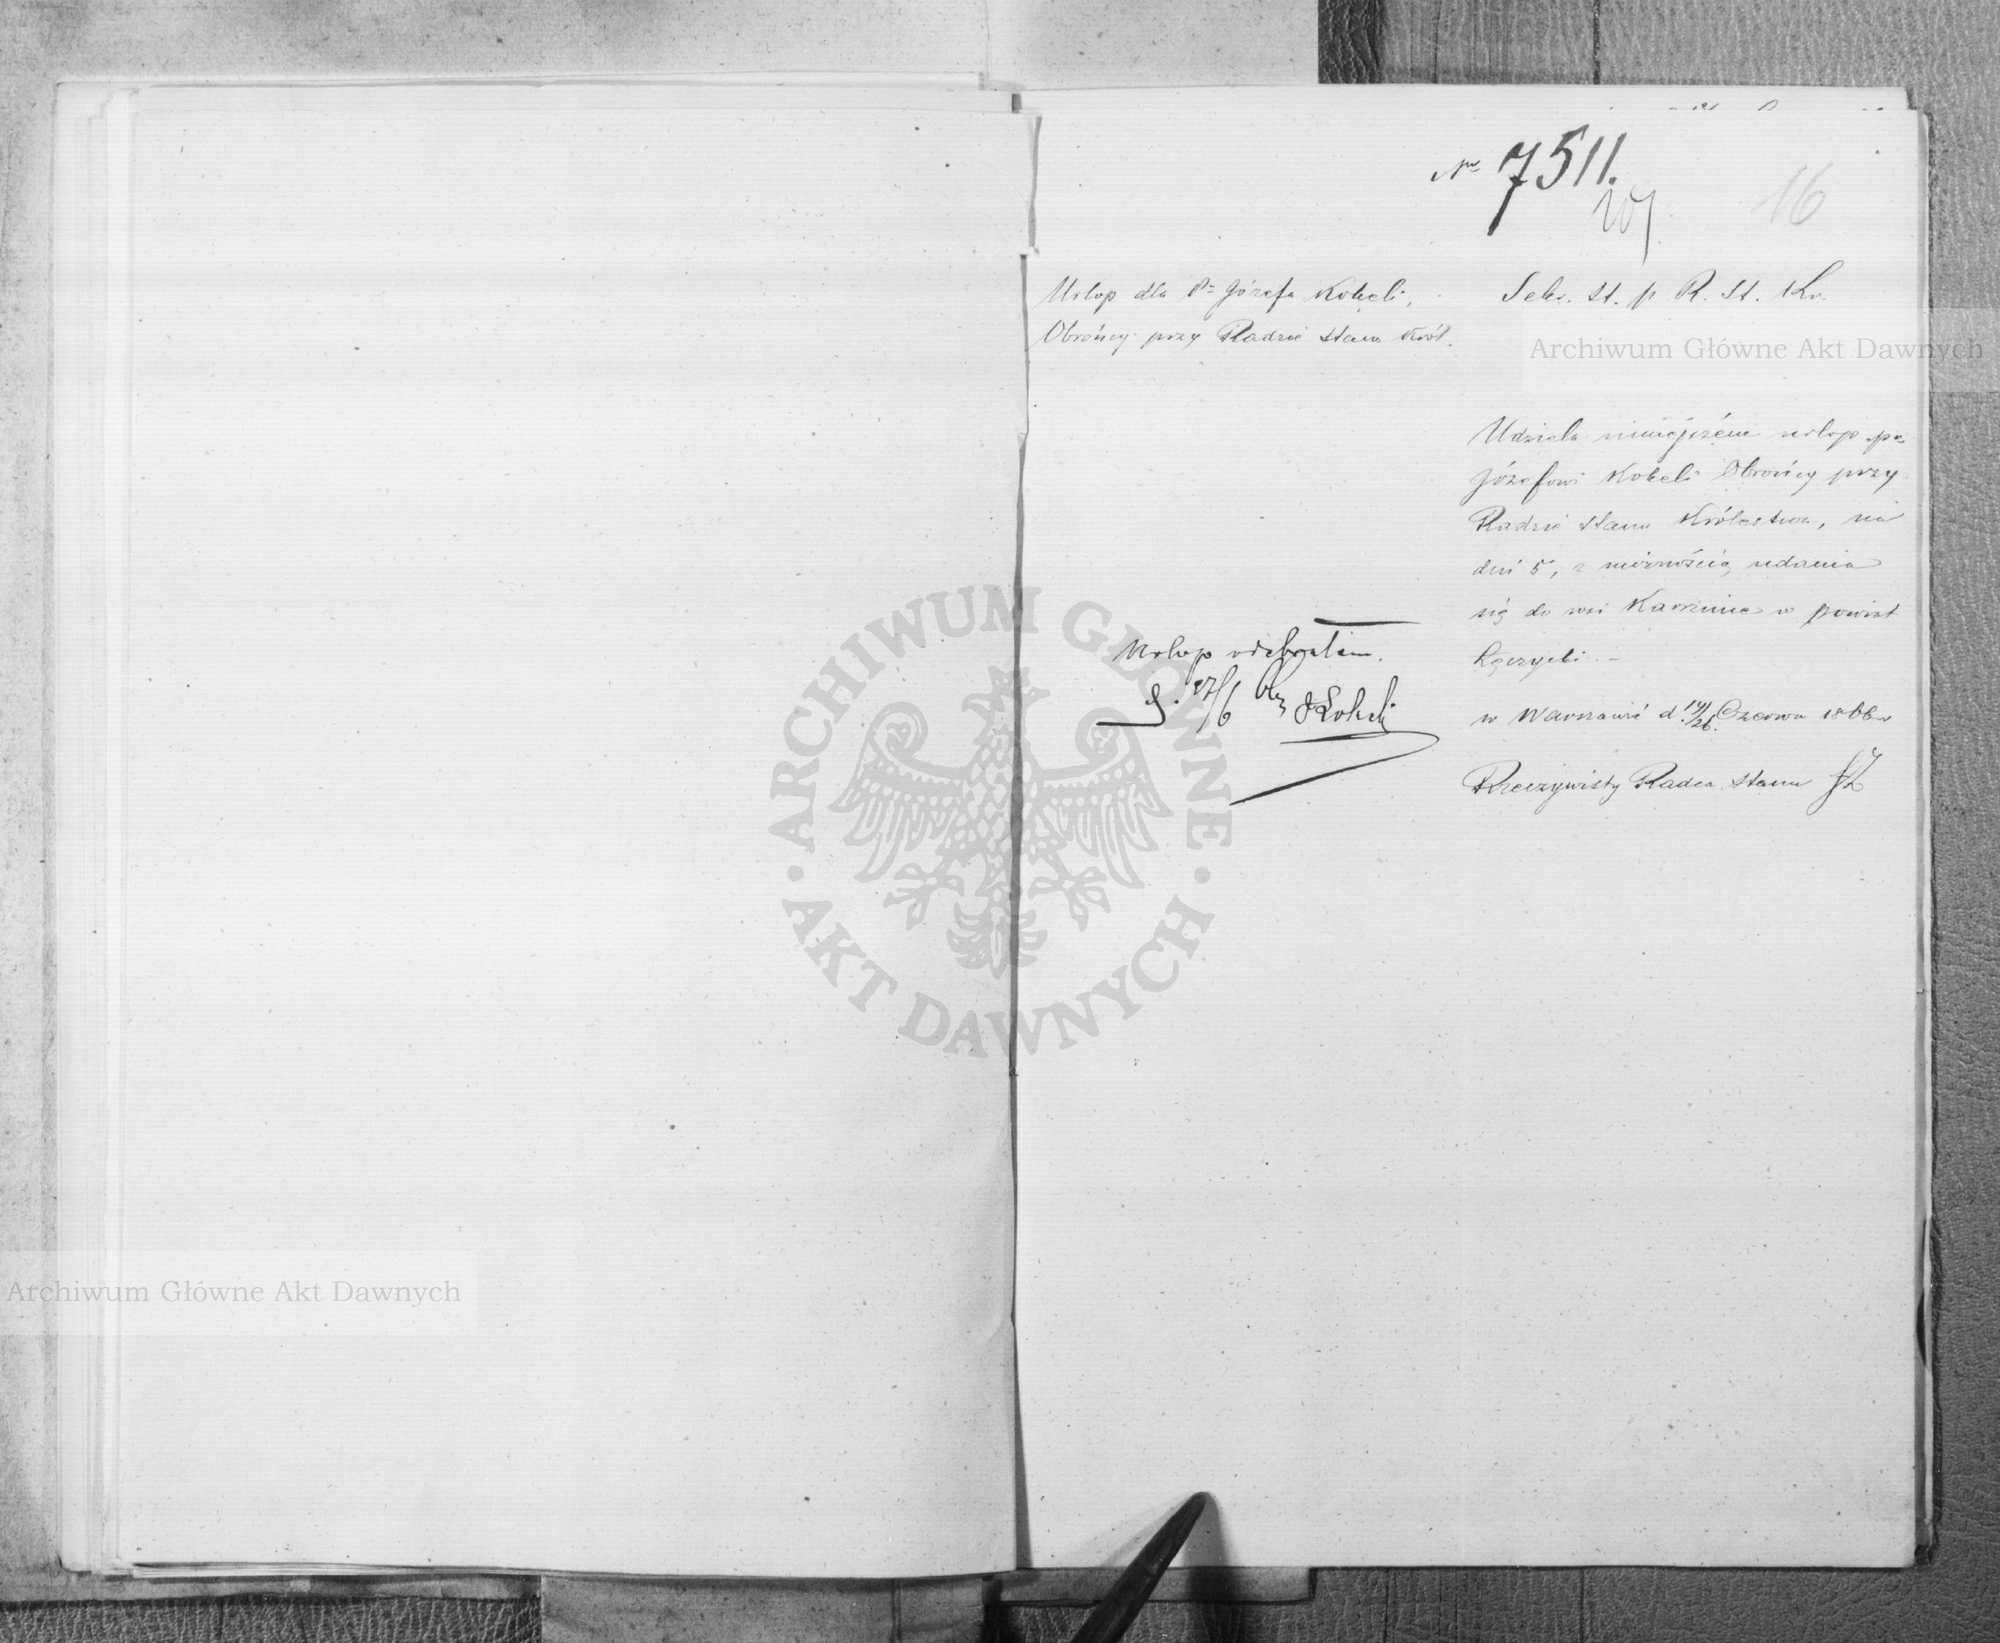 No 7511.
16
Urlop dla Pa Józefa Kokeli,
Obrońcy przy Radzie Stanu Król.
Sekr. St. p R. St. Kr.
Archiwum Główne Akt Dawnych
Udziela niniejszém urlop pu
Józefowi Kokeli Obrońcy przy
Radzie Stanu Królestwa, na
dni 5, z możnością udania
się do wsi w powiat
Łęczycki. –
w Warszawie d. 14/26 Czerwca 1866 r
Rzeczywisty Radca Stanu
Urlop odebrałem.
d. 27/6 JKokeli
ARCHIWUM GŁÓWNE
AKT DAWNYCH
Archiwum Główne Akt Dawnych